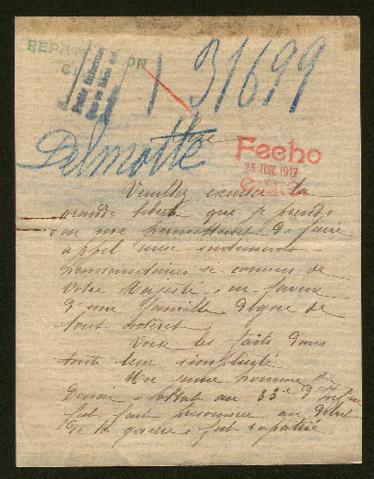 1 31699
Sire
Delmotte
Fecho
25 JUN. 1917
Veuillez excuser la
grande liberté que je prends
en me permettant de faire
appel aux sentiments
humanitaires si connus de
Votre Majesté, en faveur
d'une famille digne de
tout intérêt.
Voici les faits dans
toute leur simplicité
Un jeune homme de
Douai, soldat au 33e d'Inf
fut fait prisonnier au début
de la guerre, fut rapatrié